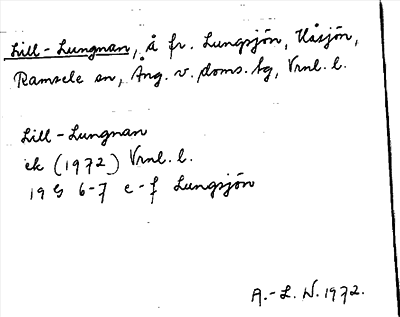 Lill-Lungnan, å fr. Lungsjön, Uåsjön,
Ramsele sn, Ång. v. doms. tg, Vrnl. l.
Lill-Lungnan
ek (1972) Vrnl. l.
19 G 6-7 e-f Lungsjön
A.-L. W. 1972.